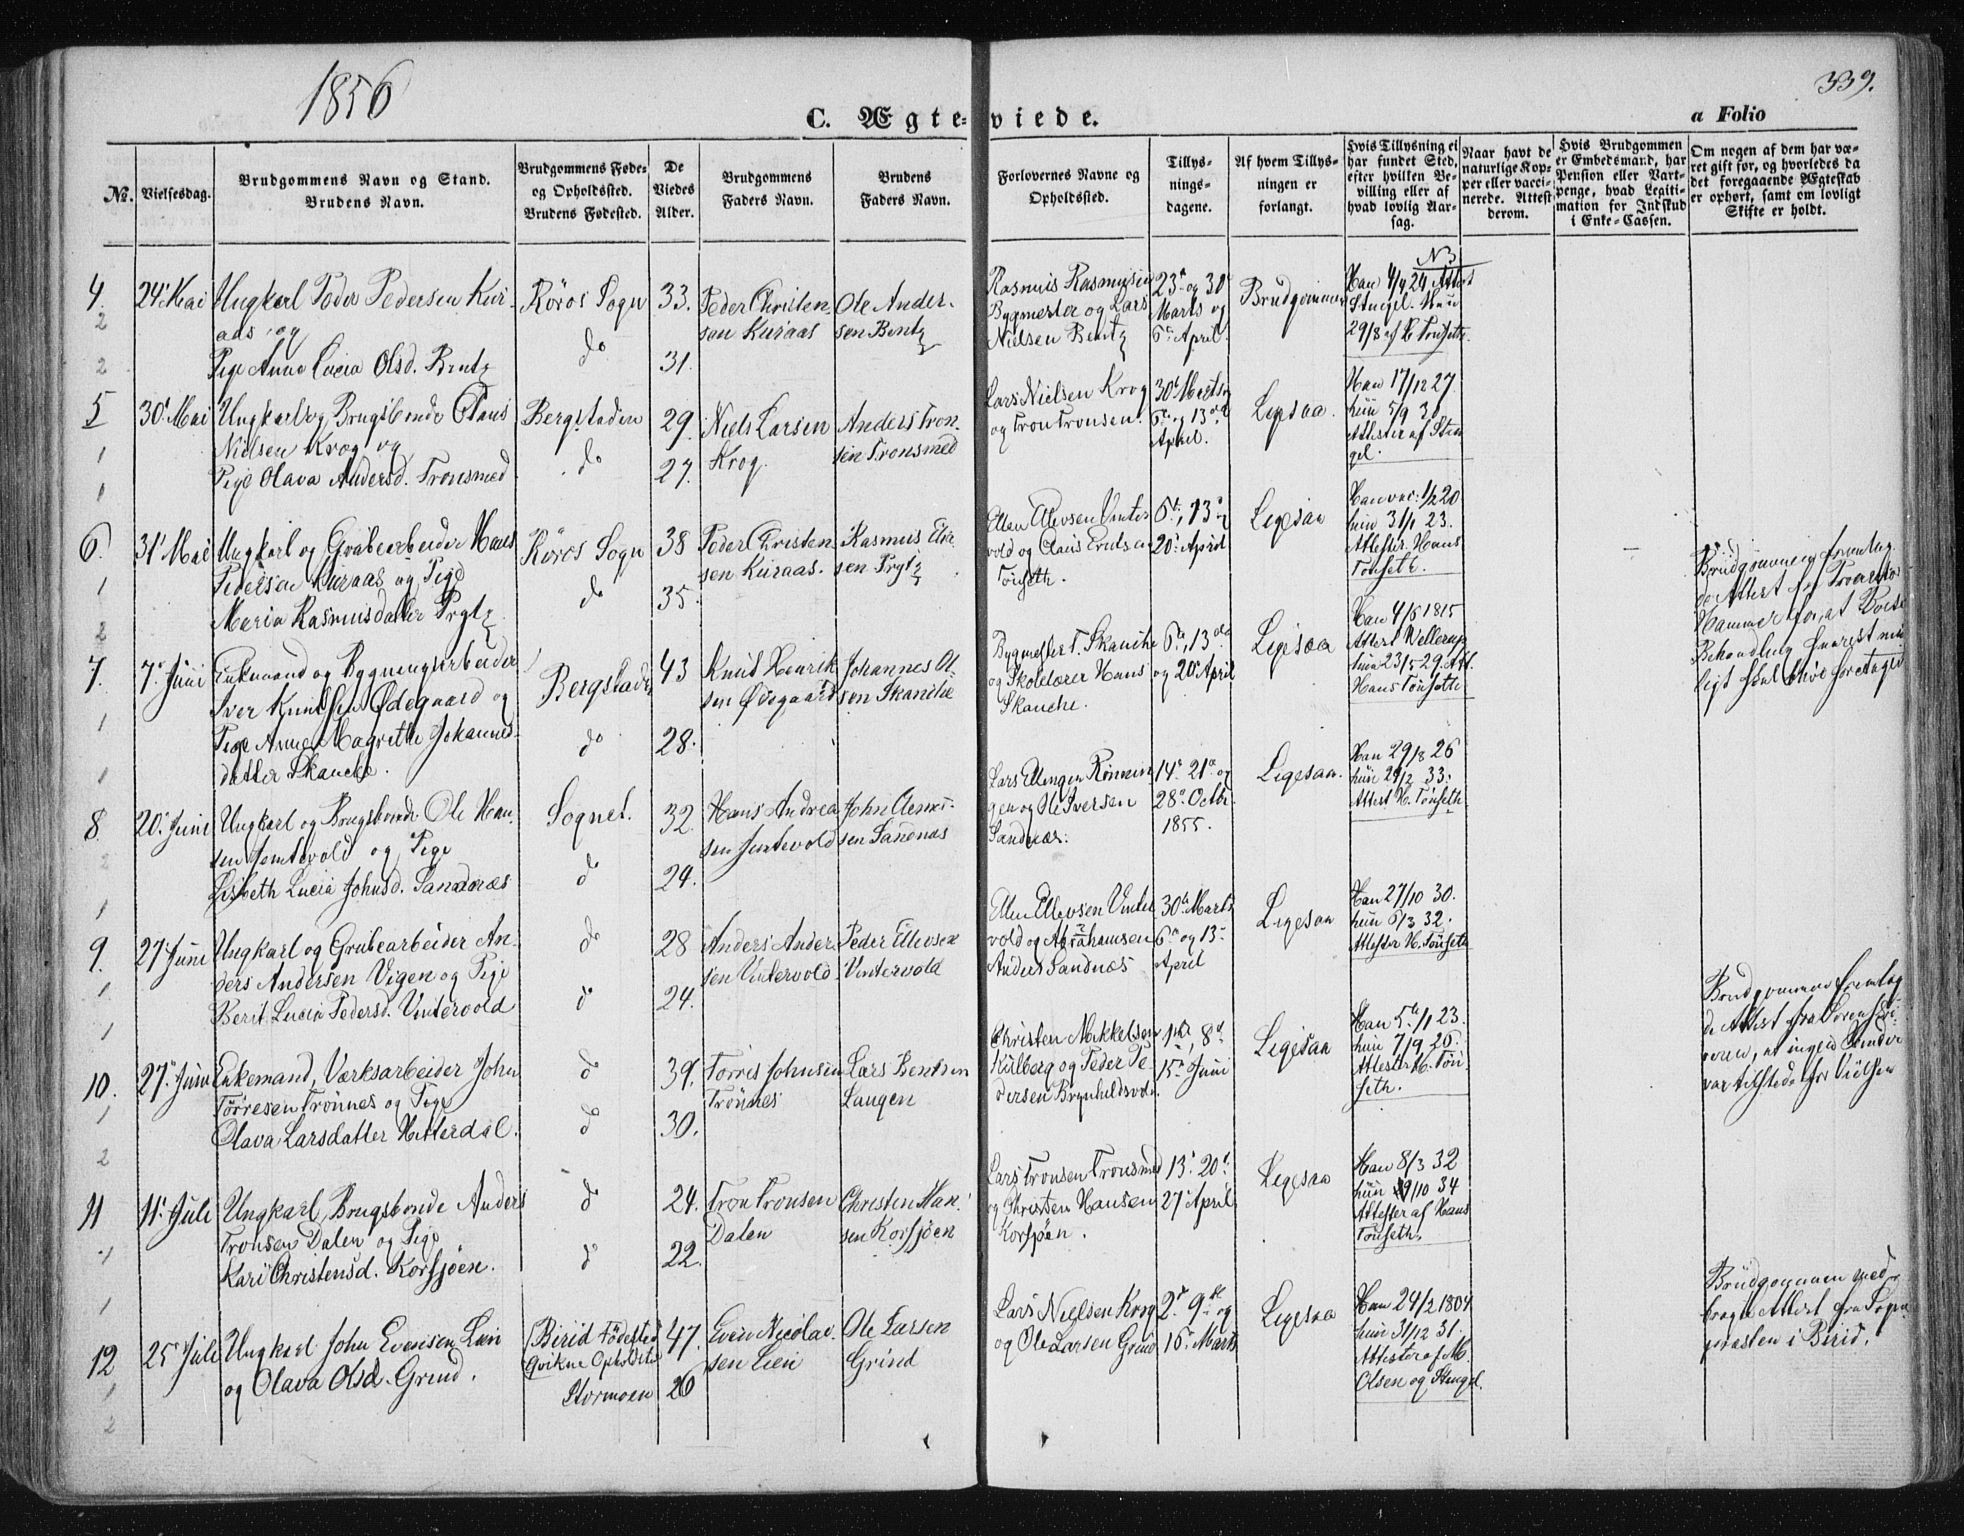 1856
339.
C. Ægte-viede.
a Folio
No.
Vielsesdag.
Brudgommens Navn og Stand.
Brudens Navn.
Brudgommens Føde-
og Opholdssted.
Brudens Fødested.
De
Viedes
Alder.
Brudgommens
Faders Navn.
Brudens
Faders Navn.
Forlovernes Navne og
Opholdssted.
Tillys-
nings-
dagene.
Af hvem Tillys-
ningen er
forlangt.
Hvis Tillysning ei
har fundet Sted,
efter hvilken Be-
villing eller af
hvad lovlig Aar-
sag.
Naar havt de
naturlige Kop-
per eller vacci-
nerede. Attest
derom.
Hvis Brudgommen
er Embedsmand, har
Pension eller Vart-
penge, hvad Legiti-
mation for Indskud
i Enke-Cassen.
Om nogen af dem har væ-
ret gift før, og hvorledes da
det foregaaende Ægteskab
er ophørt, samt om lovligt
Skifte er holdt.
4. 24 Mai Ungkarl Peder Pedersen Kur-
aas og
Pige Anne Lucia Olsd. Bentz
Røros Sogn
do
33.
31.
Peder Christen-
sen Kuraas
Ole Ander-
sen Bentz
Rasmus Rasmusen
Bygmester og Lars
Nielsen Bentz
23de og 30te
Marts og
6te April.
Brudgommen
Han 4/4 24 Attest
Stengel. Hun
29/8 af H. Tønseth.
5 30 Mai Ungkarl og Brugsbonde Claus
Nielsen Krog og
Pige Olava Andersd. Tronsmed
Bergstaden
do
29.
27.
Niels Larsen
Krog.
Anders Tron-
sen Tronsmed
Lars Nielsen Krog
og Tron Tronsen.
30te Marts
6te og 13de
April.
Ligesaa.
Han 17/12 27.
hun 5/9 30
Attester af Sten-
gel.
6. 31 Mai Ungkarl og Grubearbeider Hans
Pedersen Kuraas og Pige
Maria Rasmusdatter Prytz
Røros Sogn
do
38
35.
Peder Christen-
sen Kuraas.
Rasmus Elia-
sen Prytz
Ellen Ellevsen Vinter-
vold og Claus
Tønseth.
6te, 13de
20de April
Ligesaa
Han vac: 1/2 20
hun 31/1 23.
Attester Hans
Tønseth.
7. 7 Juni Enkemand og Bygningsarbeider
Iver Knudsen Ødegaard og
Pige Anne Magrethe Johannes-
datter Skanche.
Bergstaden
do
43
28.
Knud Henrik-
sen Ødegaard
Johannes Ol-
sen Skanche
Bygmester T. Skanche
og Skolelærer Hans
Skanche.
6te, 13de
og 20de April
Ligesaa
Han 4/6 1815
Attest Wellerup
hun 23/5 29. Att.
Hans Tønseth
Brudgommen
de Attest fra
Hammer for, at
Behandling
8 20 Juni Ungkarl og Brugsbonde Ole Han-
sen Jemtvold og Pige
Lisbeth Lucia Johnsd. Sandnæs
Sognet.
do
32.
24.
Hans Andrea-
sen Jemtvold
John
sen Sandnæs
Lars Ellingen Rønnin-
gen og Ole Iversen
Sandnæs.
14de 21de og
28de Octbr.
1855.
Ligesaa.
Han 29/8 26
hun 29/2 33.
Attest H. Tønseth
9. 27 Juni Ungkarl og Grubearbeider An-
ders Andersen Vigen og Pige
Berit Lucia Pedersd. Vintervold
do
do
28
24.
Anders Ander-
sen Vintervold
Peder Ellevsen
Vintervold
Ellen Ellevsen Vinter-
vold og Abrahamsen
Anders Sandnæs
30te Marts
6te og 13de
April
Ligesaa
Han 27/10 30.
hun 6/3 32.
Attester H. Tønseth
10. 27 Juni Enkemand, Værksarbeider John
Tørresen Trønnes og Pige
Olava Larsdatter Hitterdal.
do
do
39.
30.
Torris Johnsen
Trønnes
Lars Bentsen
Langen
Christen Mikkelsen
Kulberg og Peder Pe-
dersen Brynhildsvold.
1ste, 8de
15de Juni
Ligesaa
Han 5te/1 23.
hun 7/9 26.
Attester H. Tøn-
seth.
Brudgommen
de Attest fra
at ingen Hinder
var tilstede for Vielsen
11 11 Juli Ungkarl, Brugsbonde Anders
Tronsen Dalen og Pige
Kari Christensd. Korssjøen.
do
do
24.
22.
Tron Tronsen
Dalen
Christen Han-
sen Korssjøen
Lars Tronsen Tronsmed
og Christen Hansen
Korsjøen.
13de 20de
27de April
Ligesaa
Han 8/3 32
hun 29/10 34
Attester af Hans
Tønseth.
12 25 Juli Ungkarl John Evensen Lien
og Olava Olsd. Grind.
Birid Fødested
Qvikne Opholdsted
Stormoen
47.
26
Even Nicolai-
sen Lien
Ole Larsen
Grind
Lars Nielsen Krog
og Ole Larsen Grind
2de 9de og
16de Marts
Ligesaa
Han 24/2 1804.
hun 31/12 31.
Attester af M.
Olsen og Stengel.
Brudgommen med-
bragte Attest fra Sogne-
præsten i Birid.